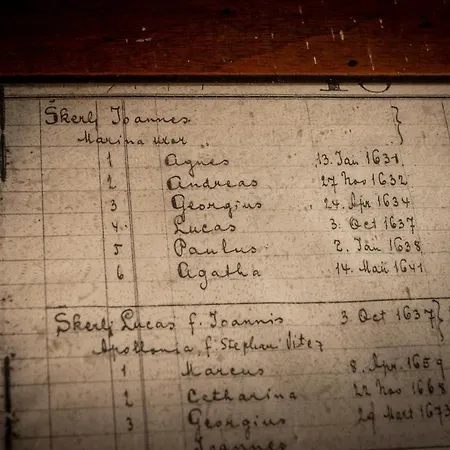 Škerlj Joannes
Marina uxor
1 Agnes 13. Jan 1631
2 Andreas 27 Nov 1632
3 Georgius 24. Apr 1634
4. Lucas 3. Oct 1637
5 Paulus 2. Jan 1638
6 Agatha 14. Maii 1641
Škerlj Lucas f. Joannis 3 Oct 1637
Apollonia, f. Stephani Vitez
1 Marcus 8. Apr. 1659
2 Catharina 22 Nov 1668
3 Georgius 29 Mart 1673
Joannes